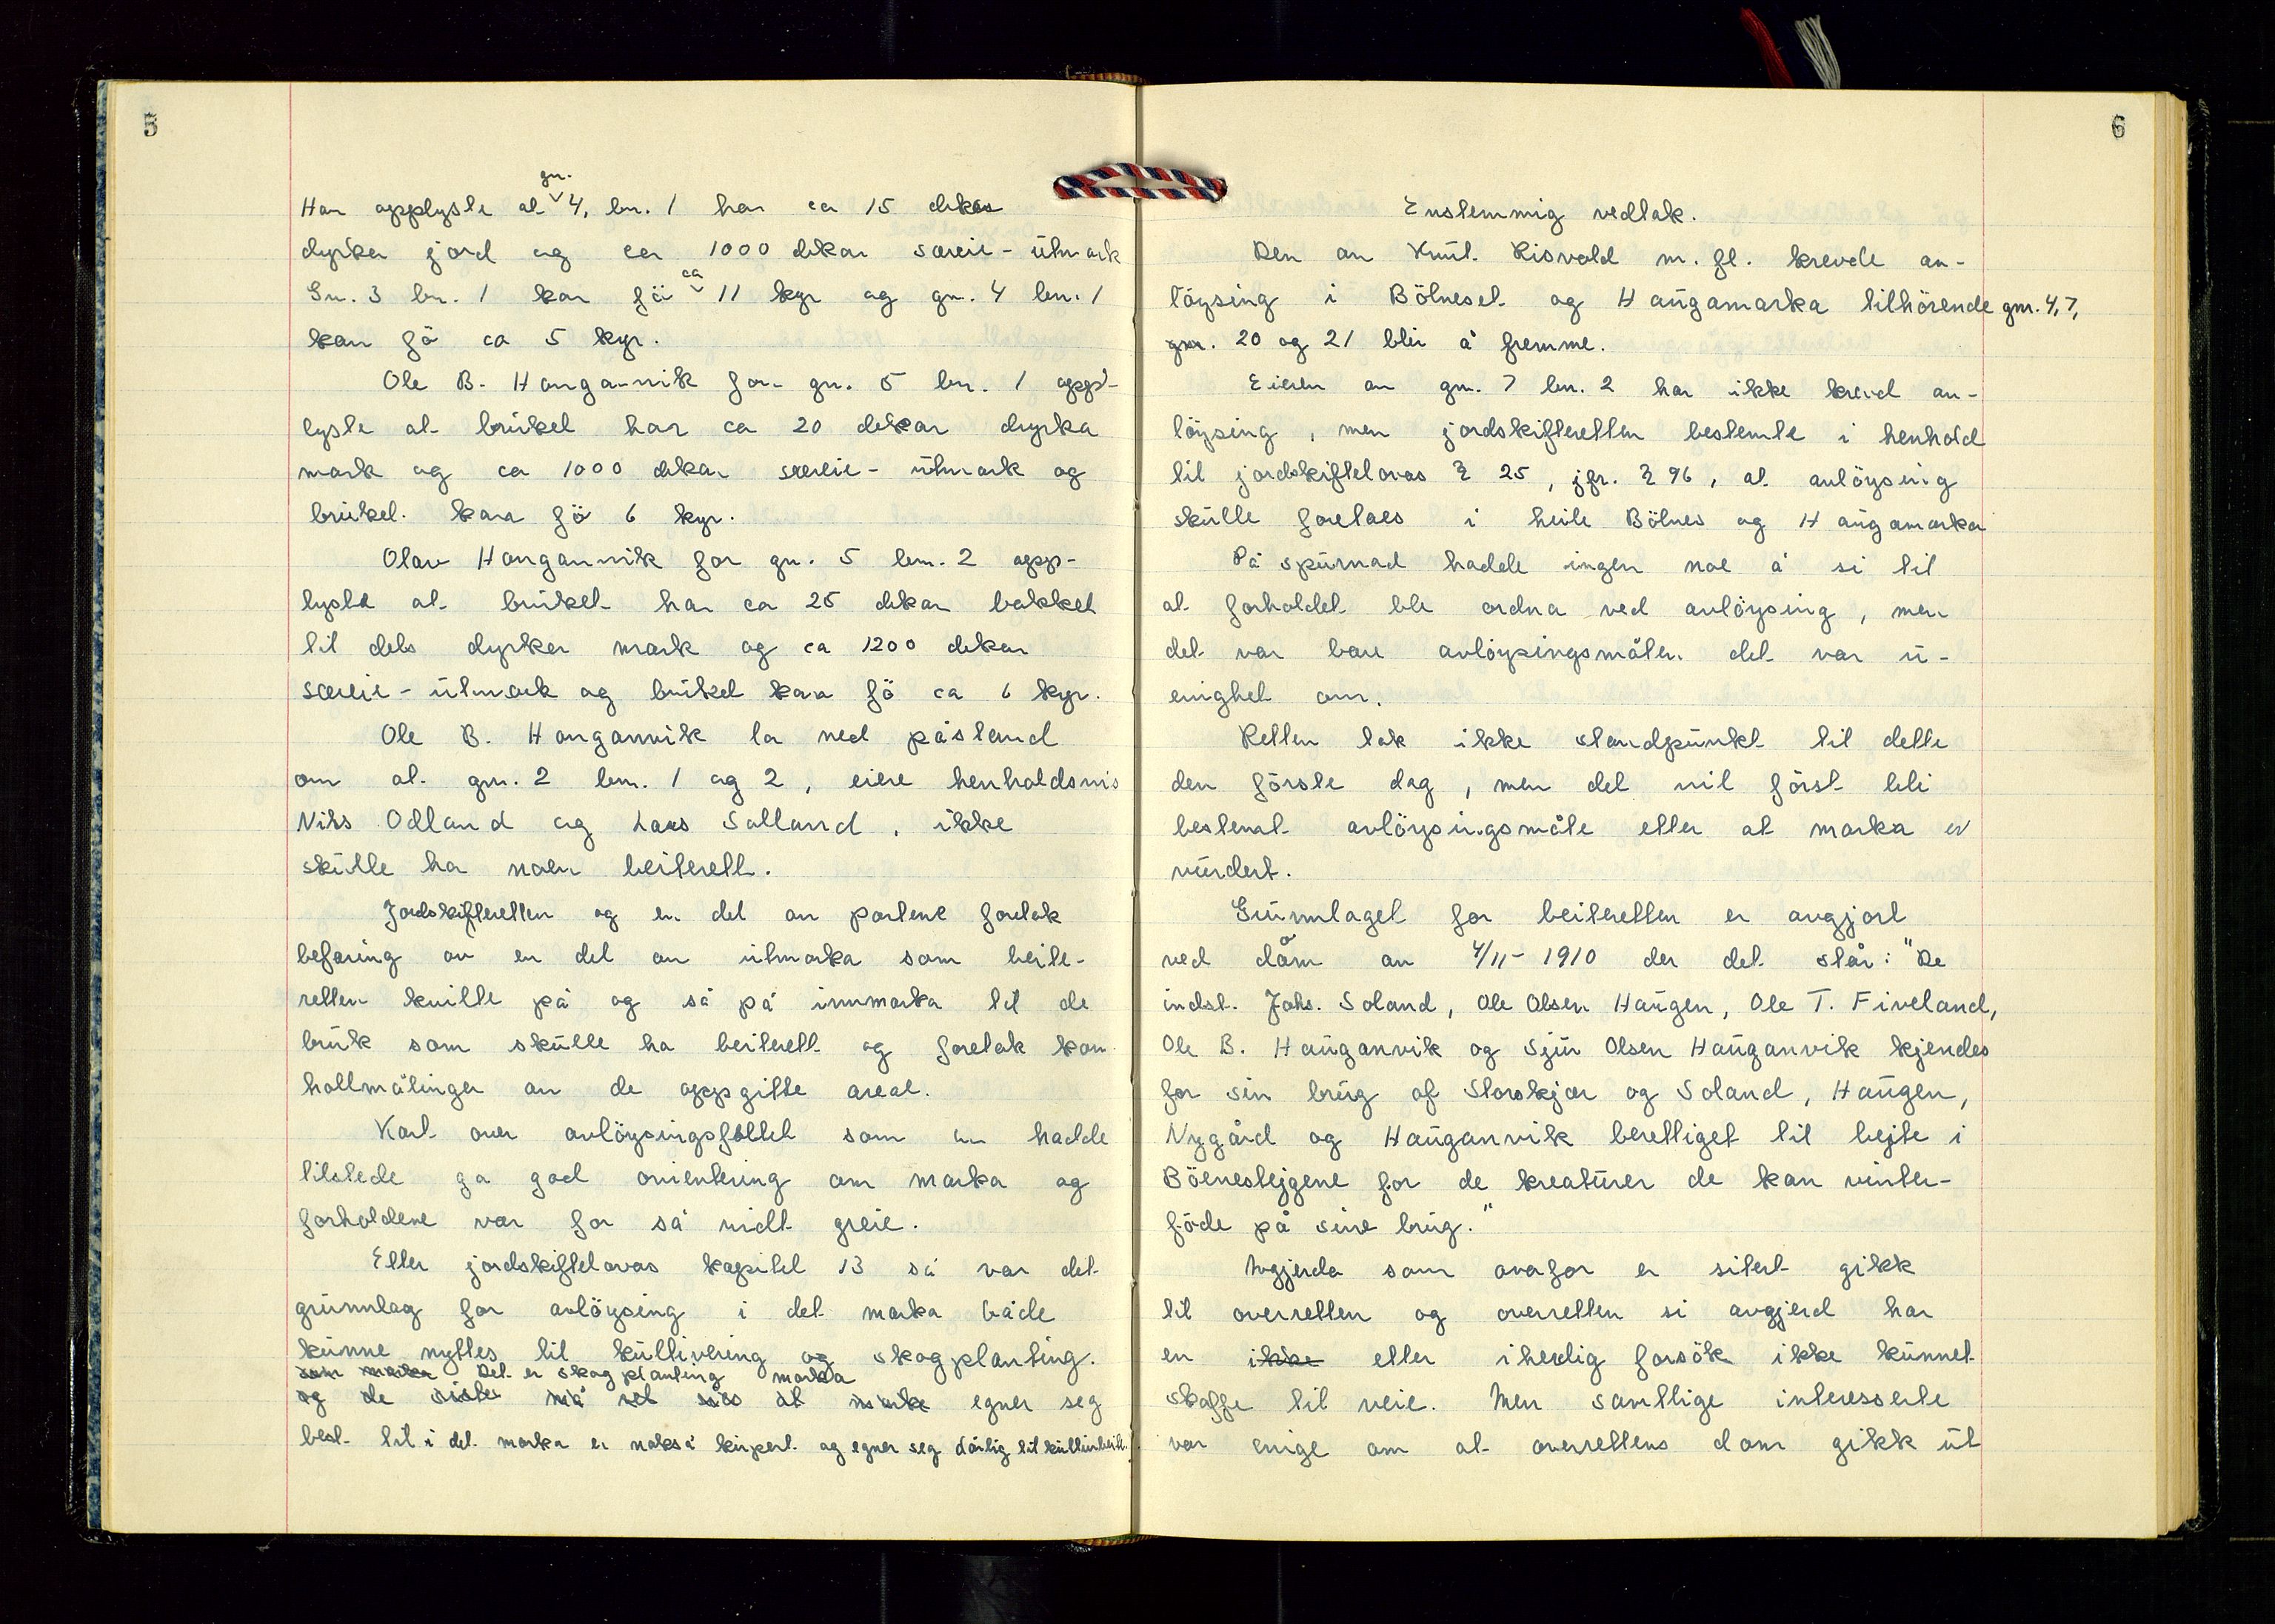 5
gn.
Han opplyste at 4, bn. 1 har ca 15 dekar
dyrka jord og ca 1000 dekar særeie-utmark
ca
Gn. 3 bn. 1 kan fö 11 kyr og gn. 4 bn. 1
kan fö ca 5 kyr.
Ole B. Hauganvik for gn. 5 bn. 1 opp-
lyste at bruket har ca 20 dekar dyrka
mark og ca 1000 dekar særeie-utmark og
bruket kan fö 6 kyr.
Olav Hauganvik for gn. 5 bn. 2 opp-
lyste at bruket har ca 25 dekar bakket
til dels dyrka mark og ca 1200 dekar
særeie-utmark og bruket kan fö ca 6 kyr.
Ole B. Hauganvik la ned påstand
om at gn. 2 bn. 1 og 2, eiere henholdsvis
Nils Odland og Lars Solland, ikke
skulle ha noen beiterett.
Jordskifteretten og en del av partene foretok
befaring av en del av utmarka som beite-
retten kvilte på og så på innmarka til de
bruk som skulle ha beiterett og foretok kon-
trollmålinger av de oppgitte areal.
Kart over avlöysingsfeltet som en hadde
tilstede ga god orientering om marka og
forholdene var for så vidt greie.
Etter jordskiftelovas kapitel 13 så var det
grunnlag for avlöysing i det marka både
kunne nyttes til kultivering og skogplanting.
som marka Det er skogplanting marka
og de siste må vel sies at marka egner seg
best til i det marka er nokså kupert og egner seg dårlig til kulturbeite.
6
Enstemmig vedtak.
Den av Knut Risvold m. fl. krevde av-
löysing i Bölneset og Haugamarka tilhörende gnr. 4, 7,
gnr. 20 og 21 blir å fremme.
Eieren av gnr. 7 bn. 2 har ikke krevd av-
löysing, men jordskifteretten bestemte i henhold
til jordskiftelovas § 25, jfr. § 96, at avlöysing
skulle foretaes i heile Bölnes og Haugamarka
På spurnad hadde ingen noe å si til
at forholdet ble ordna ved avlöysing, men
det var bare avlöysingsmåten det var u-
enighet om.
Retten tok ikke standpunkt til dette
den förste dag, men det vil först bli
bestemt avlöysingsmåte etter at marka er
vurdert.
Grunnlaget for beiteretten er avgjort
ved dom av 4/11-1910 der det står: "De
indst. Johs. Soland, Ole Olsen Haugen, Ole T. Fiveland,
Ole B. Hauganvik og Sjur Olsen Hauganvik kjendes
for sin brug af Storskjær og Soland, Haugen,
Nygård og Hauganvik berettiget til bejte i
Böenestejgene for de kreaturer de kan vinter-
föde på sine brug."
Avgjerda som ovafor er sitert gikk
til overretten og overretten si avgjerd har
en ikke etter iherdig forsök ikke kunnet
skaffe til veie. Men samtlige interesserte
var enige om at overrettens dom gikk ut